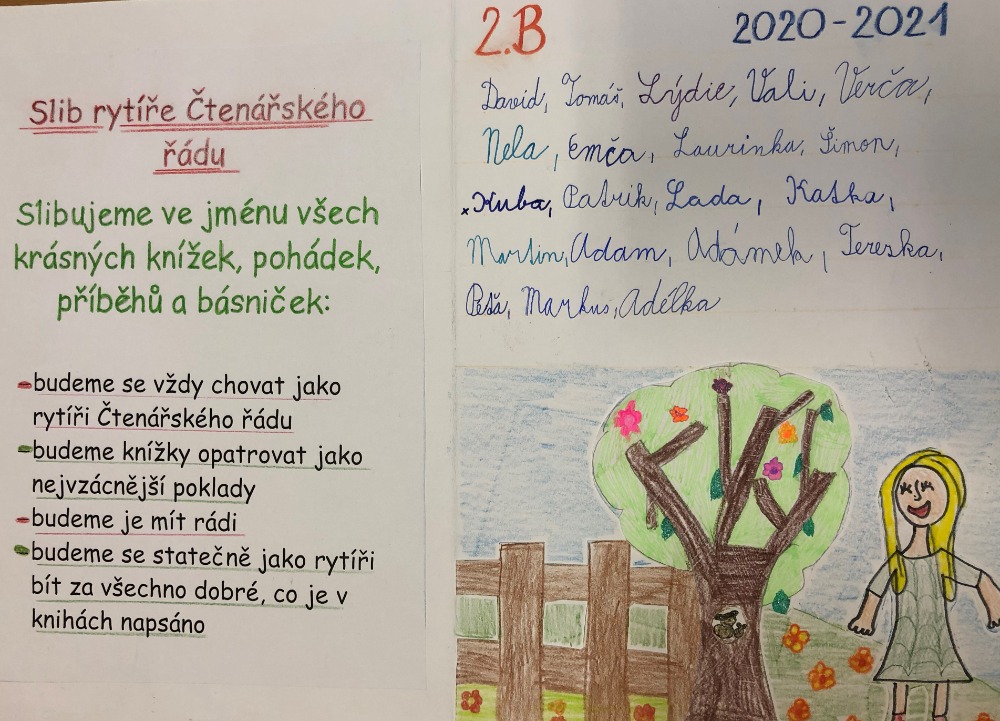 Slib rytíře Čtenářského
řádu
Slibujeme ve jménu všech
krásných knížek, pohádek,
příběhů a básniček:
-budeme se vždy chovat jako
rytíři Čtenářského řádu
-budeme knížky opatrovat jako
nejvzácnější poklady
-budeme je mít rádi
-budeme se statečně jako rytíři
bít za všechno dobré, co je v
knihách napsáno
2.B 2020-2021
David, Tomáš, Lýdie, Vali, Verča,
Nela, Emča, Laurinka, Šimon,
Kuba, Patrik, Lada, Katka,
Martin, Adam, Adámek, Terezka,
Péťa, Markus, Adélka